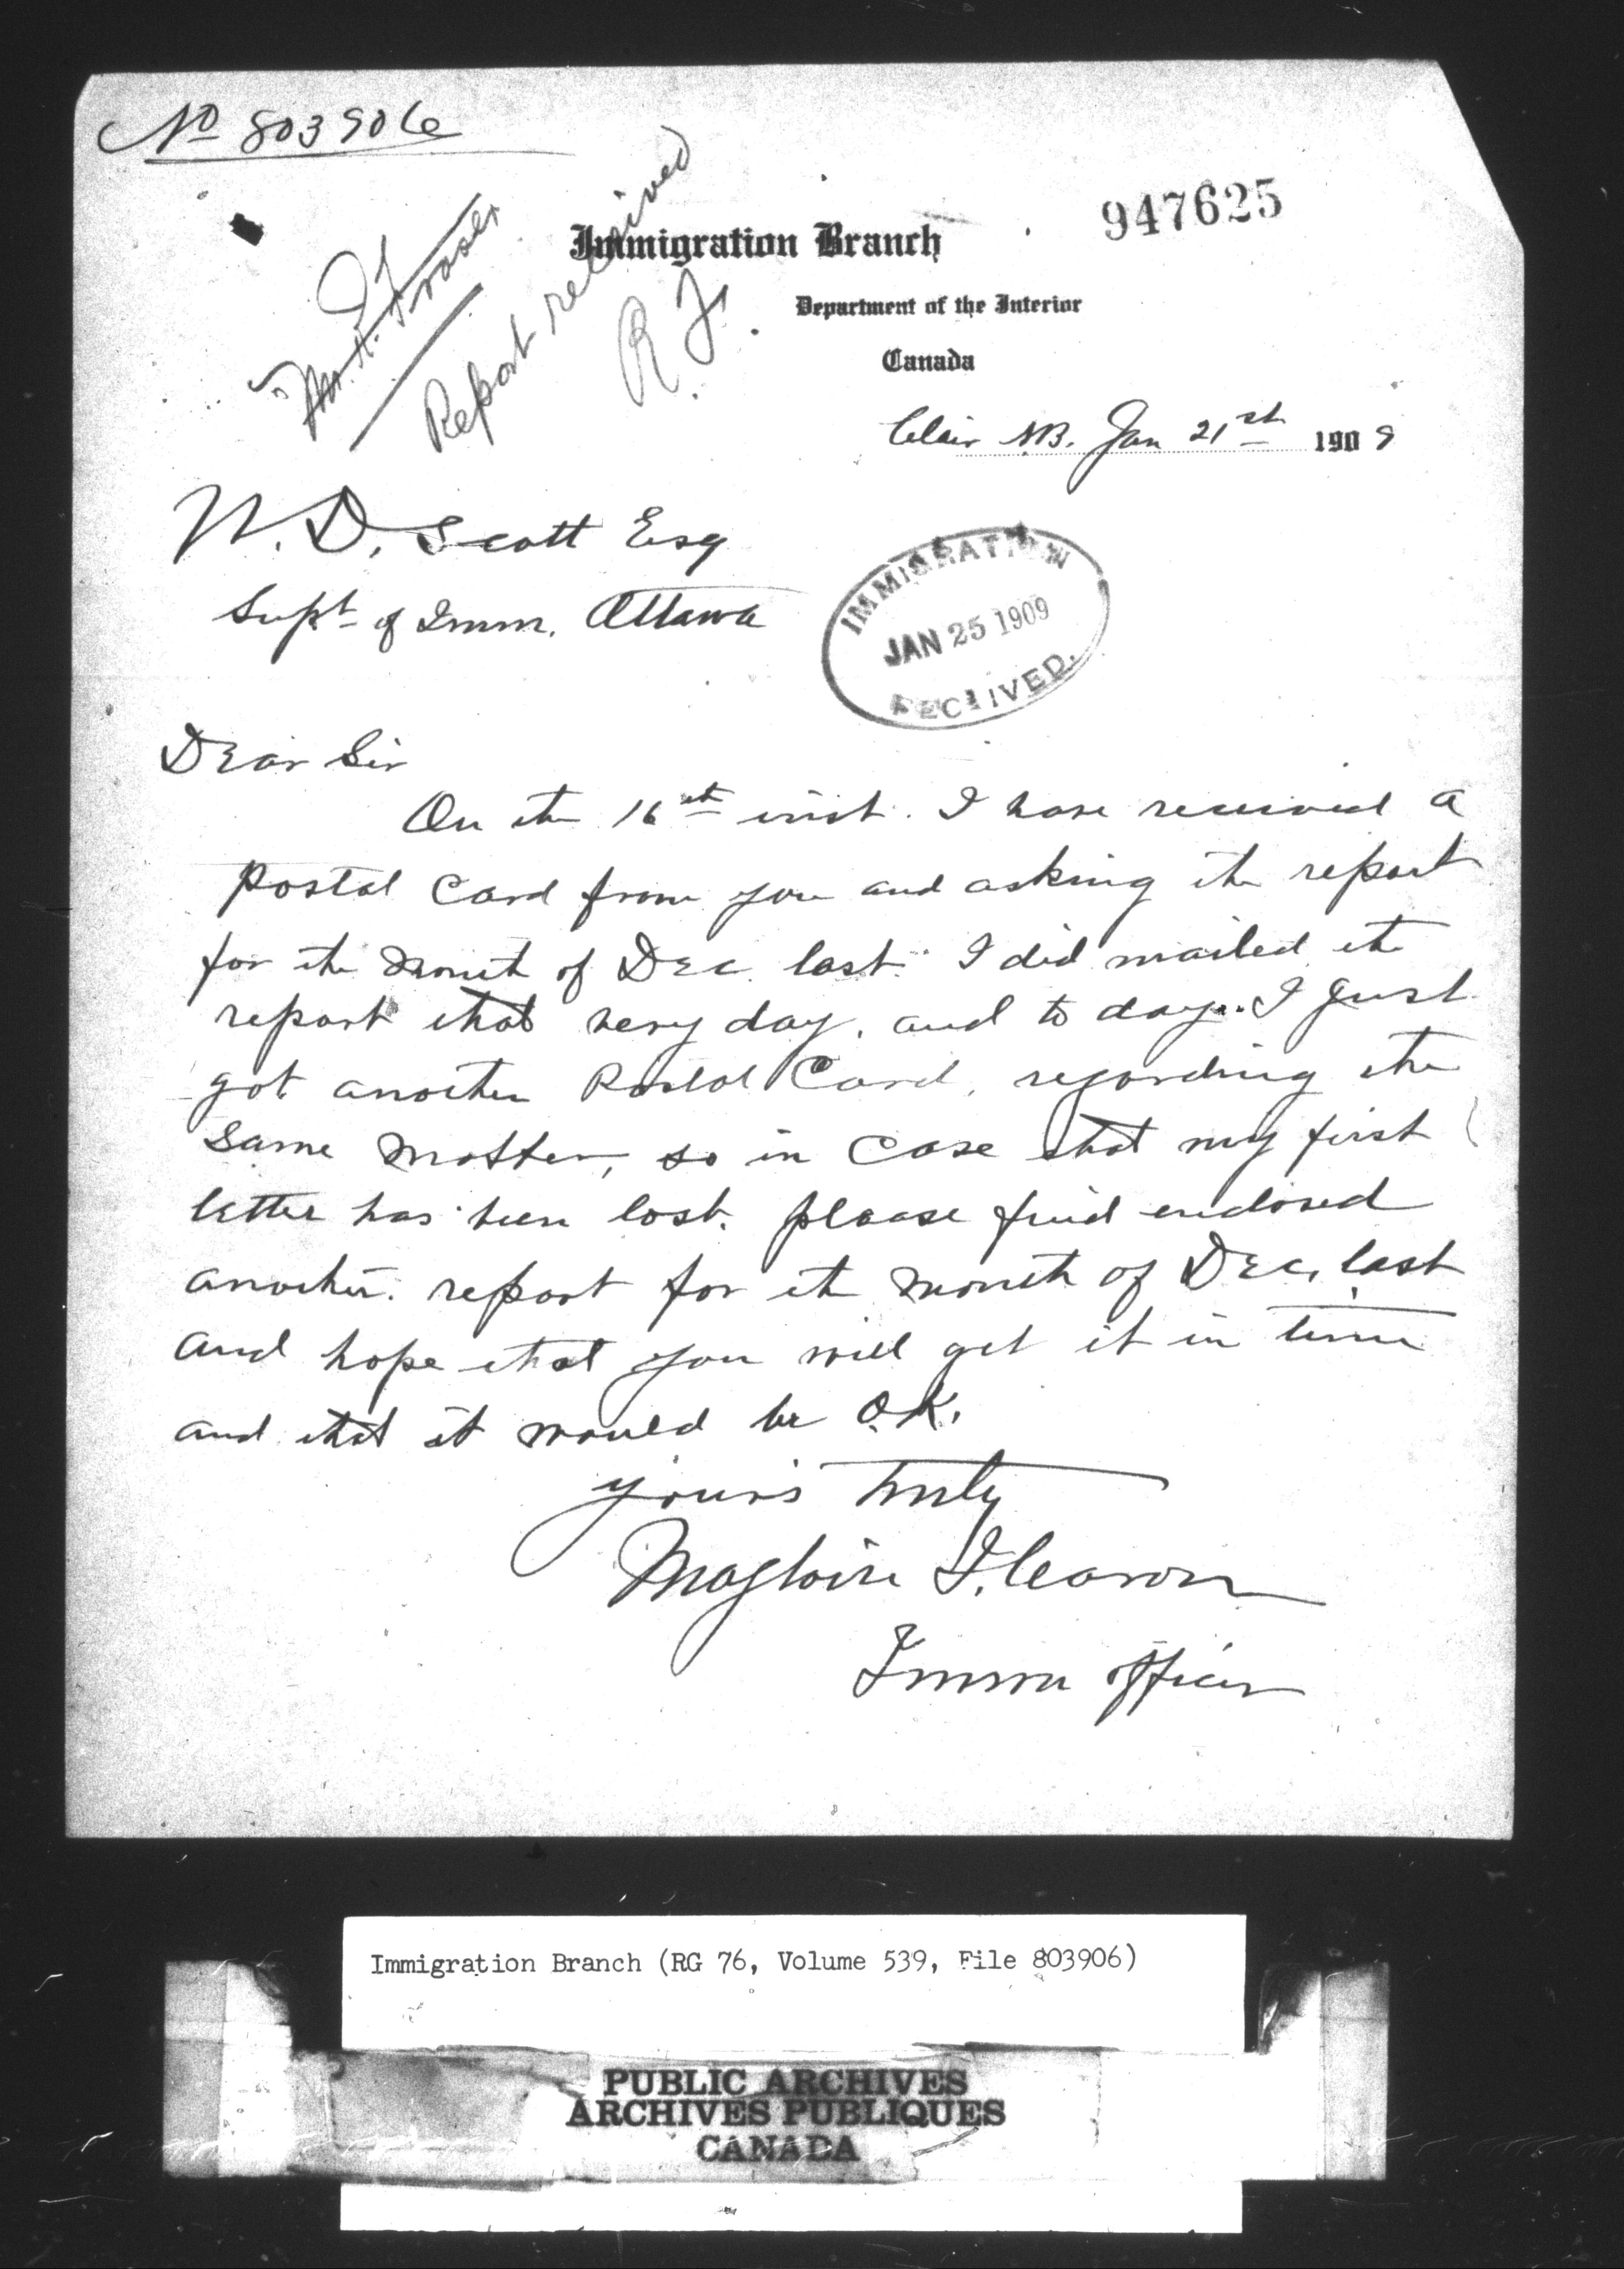 No 803906
947625
Mr. Fraser
Report received
R. F.
Immigration Branch
Department of the Interior
Canada
Clair N.B. Jan 21st 1909
W. D. Scott Esq
Supt of Imm. Ottawa
IMMIGRATION
JAN 25 1909
RECEIVED.
Dear Sir
On the 16th inst. I have received a
Postal Card from you and asking the report
for the month of Dec. last. I did mailed the
report that very day, and to day. I just
got another Postal Card, regarding the
same matter, so in case that my first
letter has been lost. please find enclosed
another report for the month of Dec. last
and hope that you will get it in time
and that it would be O.K.
yours truly
Magloire J. Caron
Imm officer
Immigration Branch (RG 76, Volume 539, File 803906)
PUBLIC ARCHIVES
ARCHIVES PUBLIQUES
CANADA